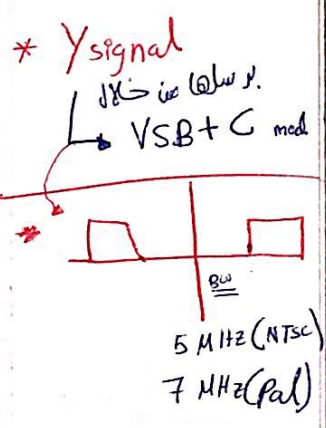 * Y signal
برسلها من خلال
VSB + C mod
*
BW
5 MHz (NTSC)
7 MHz (Pal)